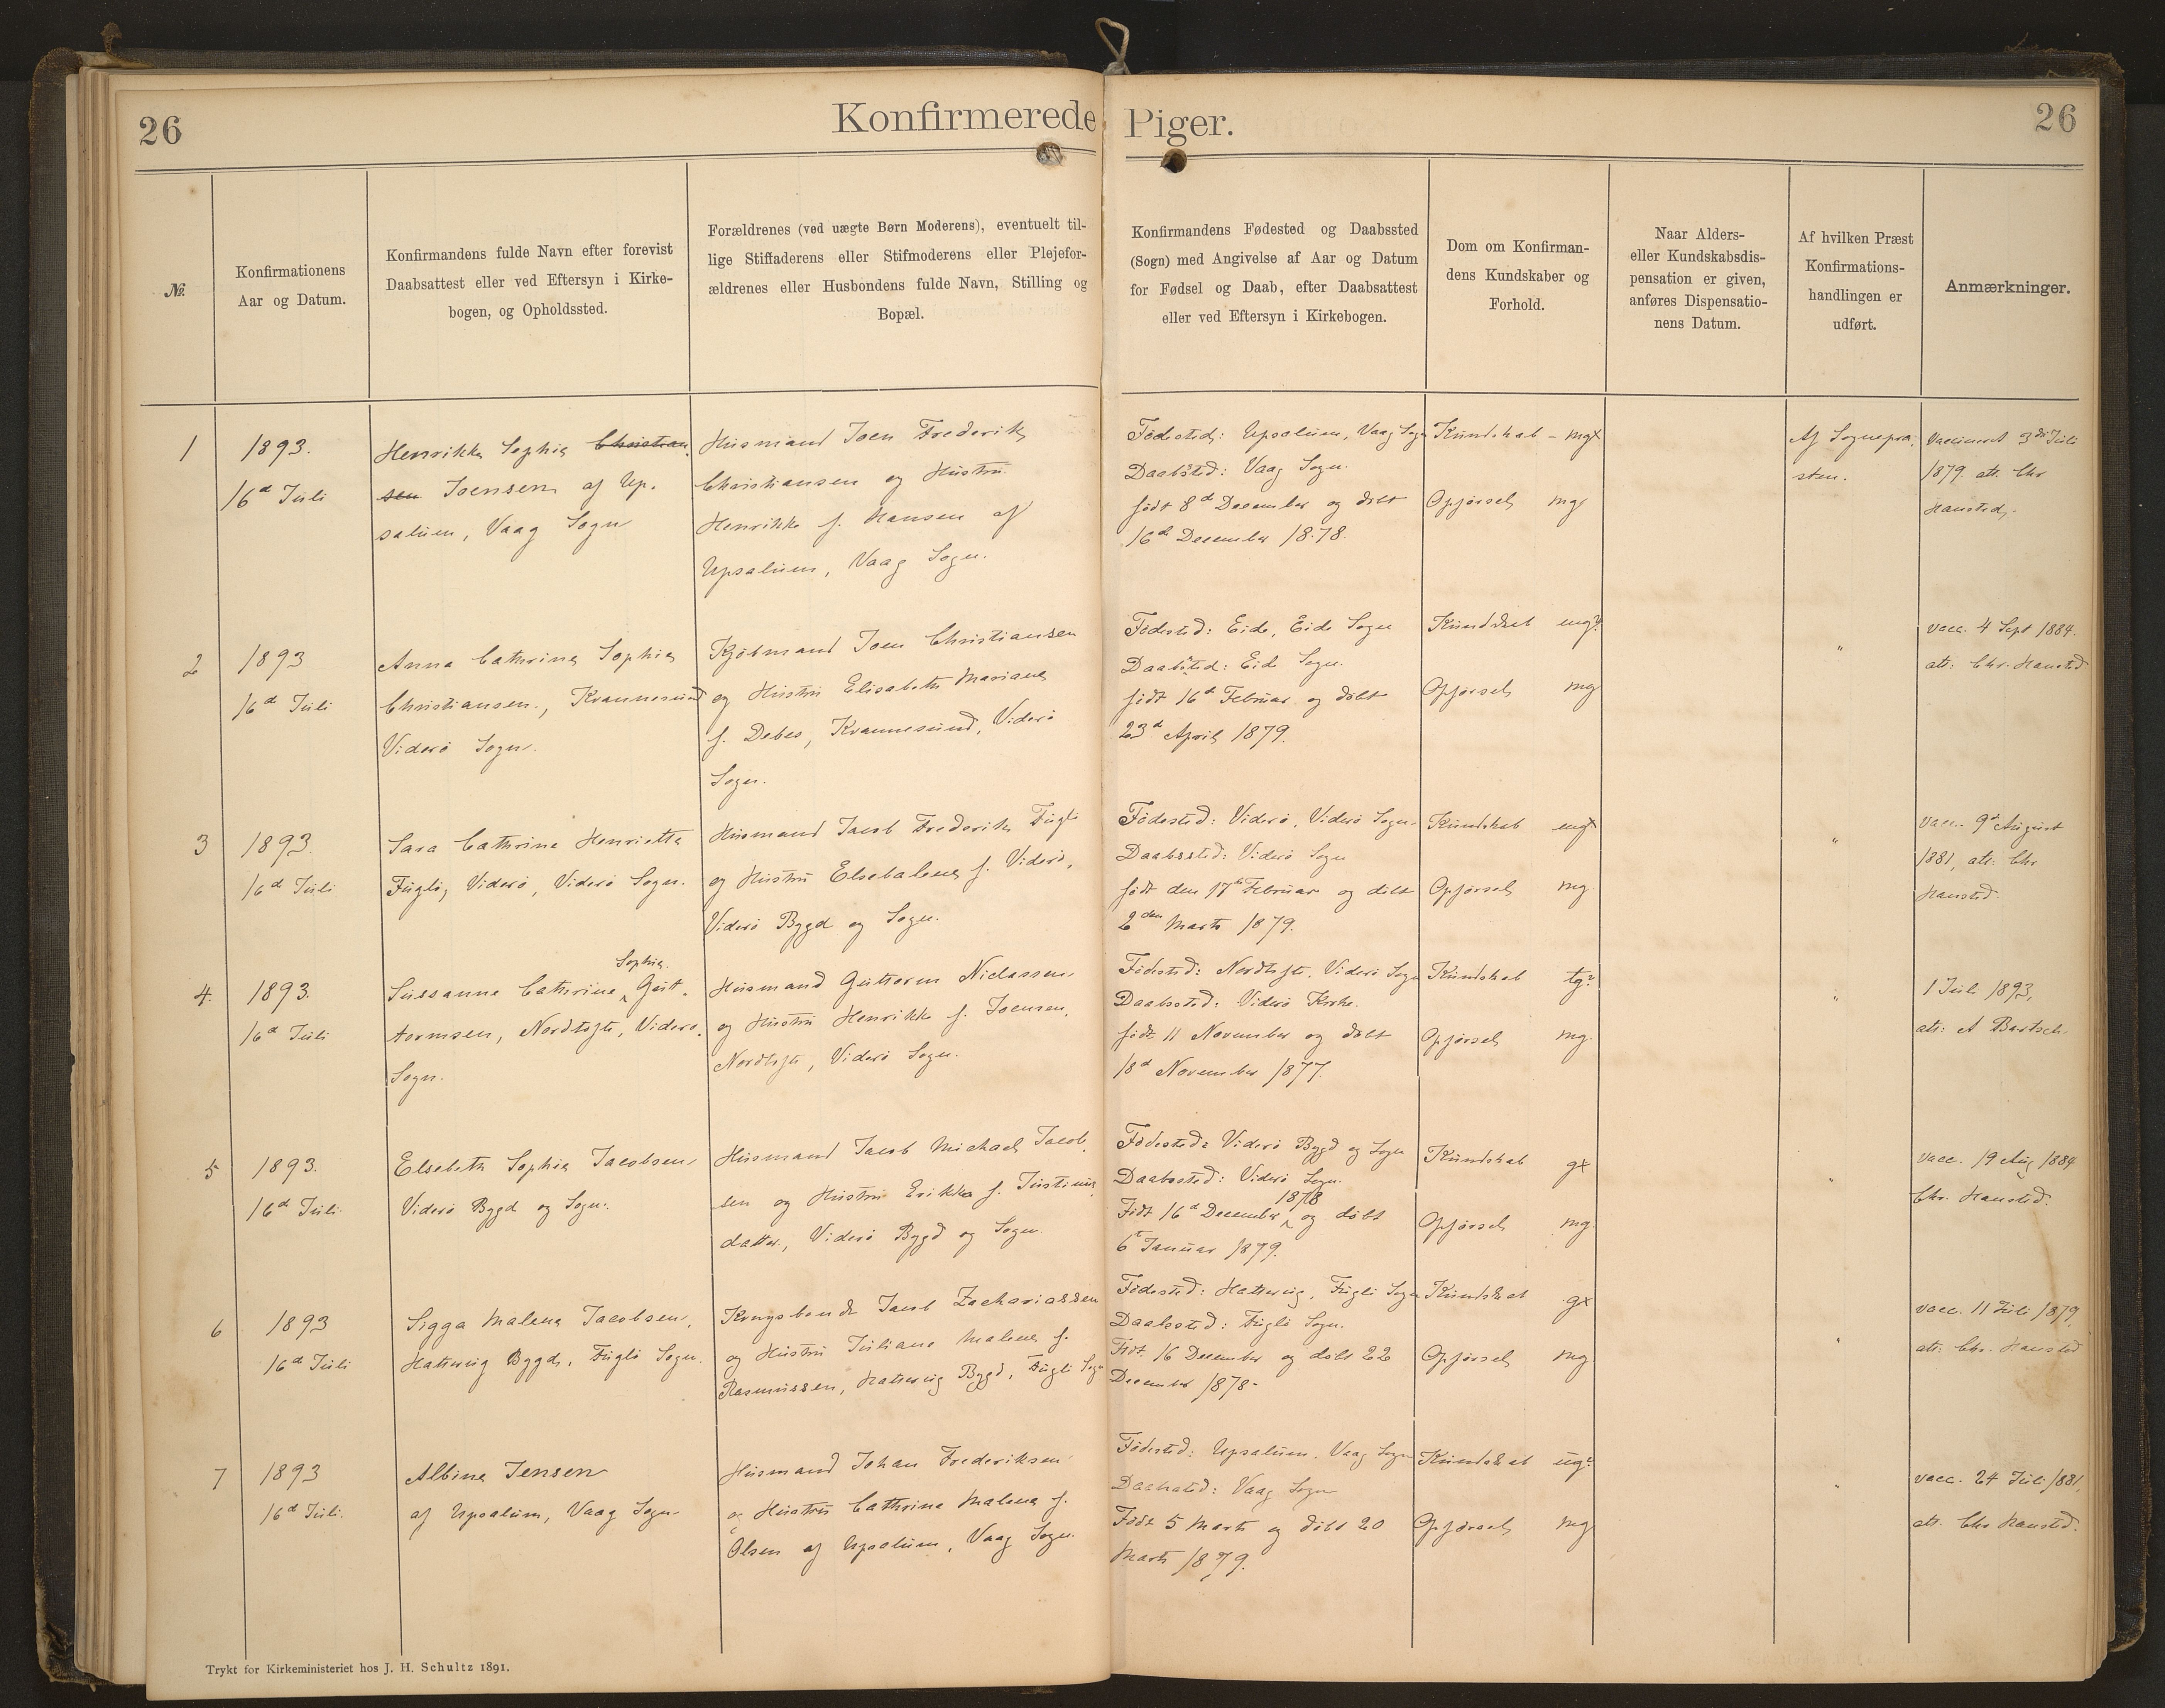 26
Konfirmerede Piger.
26
№.
Konfirmationens
Aar og Datum.
Konfirmandens fulde Navn efter forevist
Daabsattest eller ved Eftersyn i Kirke-
bogen, og Opholdssted.
Forældrenes (ved uægte Børn Moderens), eventuelt til-
lige Stiffaderens eller Stifmoderens eller Plejefor-
ældrenes eller Husbondens fulde Navn, Stilling og
Bopæl.
Konfirmandens Fødested og Daabssted
(Sogn) med Angivelse af Aar og Datum
for Fødsel og Daab, efter Daabsattest
eller ved Eftersyn i Kirkebogen.
Dom om Konfirman-
dens Kundskaber og
Forhold.
Naar Alders-
eller Kundskabsdis-
pensation er given,
anføres Dispensatio-
nens Datum.
Af hvilken Præst
Konfirmations-
handlingen er
udført.
Anmærkninger.
1
1893.
16d Juli
Henrikka Sophia Christian
sen Joensen af Up-
salum, Vaag Sogn
Husmand Joen Frederik
Christiansen og Hustru
Henrikke f. Hansen af
Upsalum, Vaag Sogn.
Fødested: Upsalum, Vaag Sogn
Daabsted: Vaag Sogn.
født 8d December og døbt
16d December 1878.
Kundskab - mgx
Opførsel mg
Af Sognepræ-
sten.
Vaccineret 3die Juli
1879. att. Chr
Hansted.
2
1893
16d Juli
Anna Cathrina Sophia
Christiansen, Kvannesund
Viderø Sogn.
Kjøbmand Joen Christiansen
og Hustru Elisabeth Mariane
f. Debes, Kvannesund, Viderø
Sogn.
Fødested: Eide, Eide Sogn
Daabsted: Eide Sogn.
født 16d Februar og døbt
23d April 1879.
Kundskab mg?
Opførsel mg
"
vacc. 4 Sept 1884.
att: Chr. Hansted
3
1893.
16d Juli
Sara Cathrina Henrietta
Fuglø, Viderø, Viderø Sogn.
Husmand Jacob Frederik Fuglø
og Hustru Elsebalena f. Viderø,
Viderø Bygd og Sogn.
Fødested: Viderø, Viderø Sogn.
Daabssted: Viderø Sogn
født den 17de Februar og døbt
2den Marts 1879.
Kundskab mgx
Opførsel mg.
"
vacc. 9d August
1881, att: Chr
Hansted.
4.
1893.
16d Juli
Sophia
Sussanne Cathrine Gutt-
ormsen, Nordtofte, Viderø
Sogn.
Husmand Guttorm Niclassen
og Hustru Henrikke f. Joensen,
Nordtofte, Viderø Sogn.
Fødested: Nordtofte, Viderø Sogn
Daabssted: Viderø Kirke.
født 11 November og døbt
18d November 1877.
Kundskab tg?
Opførsel mg.
"
1 Juli 1893,
att: A Bartsch
5
1893.
16d Juli
Elsebeth Sophia Jacobsen,
Viderø Bygd og Sogn.
Husmand Jacob Michael Jacob-
sen og Hustru Erikka f. Justinus-
datter, Viderø Bygd og Sogn.
Fødested: Viderø Bygd og Sogn
Daabssted: Viderø Sogn.
1878
Født 16d December og døbt
6t Januar 1879.
Kundskab gx
Opførsel mg.
"
vacc. 19 Aug 1884
Chr. Hansted.
6
1893
16d Juli
Sigga Malena Jacobsen,
Hattervig Bygd, Fuglø Sogn.
Kongsbonde Jacob Zachariassen
og Hustru Juliane Malena f.
Rasmussen, Hattervig Bygd, Fuglø Sogn
Fødested: Hattervig, Fuglø Sogn
Daabssted: Fuglø Sogn.
Født 16 December og døbt 22
December 1878.
Kundskab gx
Opførsel mg
"
vacc. 11 Juli 1879,
att: Chr. Hansted
7
1893
16d Juli.
Albina Jensen
af Upsalum, Vaag Sogn.
Husmand Johan Frederiksen
og Hustru Cathrina Malena f.
Olsen af Upsalum, Vaag Sogn.
Fødested: Upsalum, Vaag Sogn
Daabsted: Vaag Sogn
Født 5 Marts og døbt 20
Marts 1879.
Kundskab ug?
Opførsel mg
"
vacc. 24 Juli 1881,
att. Chr Hansted.
Trykt for Kirkeministeriet hos J. H. Schultz 1891.